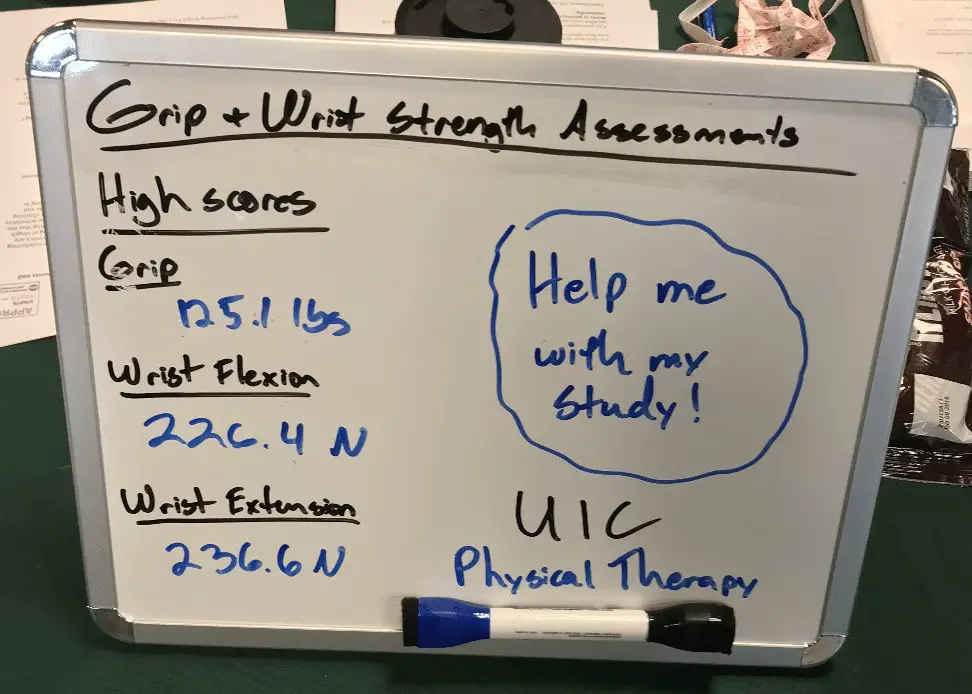 Grip + Wrist Strength Assessments
High scores
Grip
125.1 lbs
Wrist Flexion
226.4 N
Wrist Extension
236.6 N
Help me
with my
study!
UIC
Physical Therapy